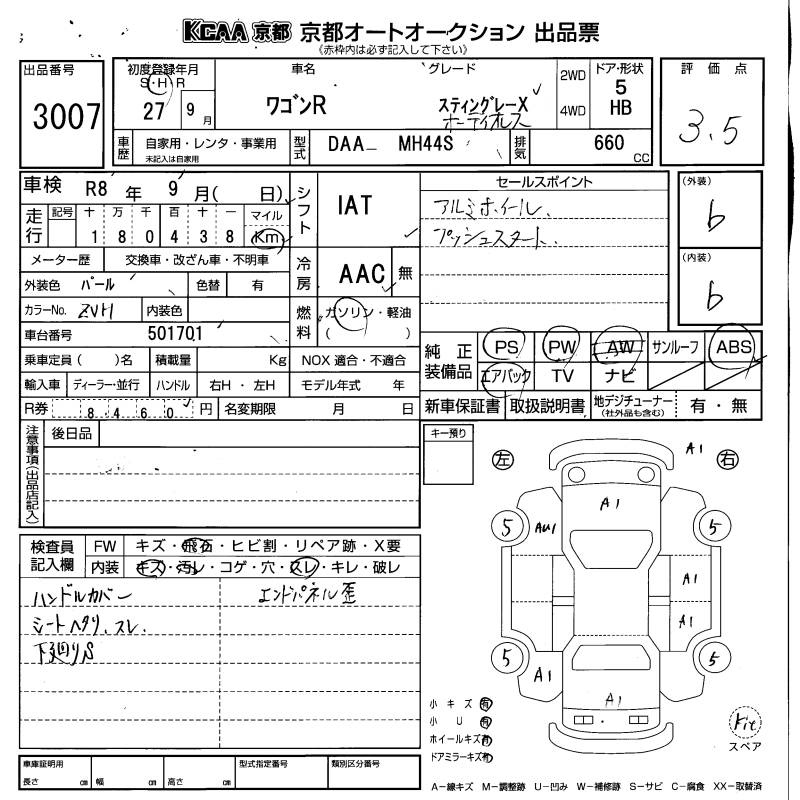 KCAA 京都 京都オートオークション 出品票
《赤枠内は必ず記入して下さい》
出品番号
3007
初度登録年月
S・H・R
27 9 月
車名
ワゴンR
グレード
スティングレーX
2WD
4WD
ドア・形状
5
HB
評価点
3.5
車歴
自家用・レンタ・事業用
未記入は自家用
型式
DAA- MH44S
排気
660 CC
車検 R8 年 9 月( 日)
シフト
IAT
走行
記号 十 万 千 百 十 一 マイル
1 8 0 4 3 8 Km
メーター歴 交換車・改ざん車・不明車
冷房
AAC 無
外装色 パール 色替 有
カラーNo. ZVH 内装色
燃料
ガソリン・軽油
( )
車台番号 501701
乗車定員( )名 積載量 Kg NOX 適合・不適合
輸入車 ディーラー・並行 ハンドル 右H・左H モデル年式 年
R券 8460 円 名変期限 月 日
セールスポイント
アルミホイール、
プッシュスタート、
(外装)
b
(内装)
b
純正装備品
PS PW AW サンルーフ ABS
エアバック TV ナビ
新車保証書 取扱説明書 地デジチューナー
(社外品も含む)
有・無
注意事項(出品店記入)
後日品
キー預り
左 右
A1
A1
5 AU1 5
A1
A1
5 A1 5
A1
検査員記入欄
FW キズ・飛石・ヒビ割・リペア跡・X要
内装 キズ・汚レ・コゲ・穴・スレ・キレ・破レ
ハンドルカバー
エンドパネル歪
シートヘタリ、スレ、
下廻りS
小キズ 有
小U 有
ホイールキズ 有
ドアミラーキズ 有
Kit
スペア
車庫証明用
長さ cm 幅 cm 高さ cm
型式指定番号
類別区分番号
A-線キズ M-調整跡 U-凹み W-補修跡 S-サビ C-腐食 XX-取替済